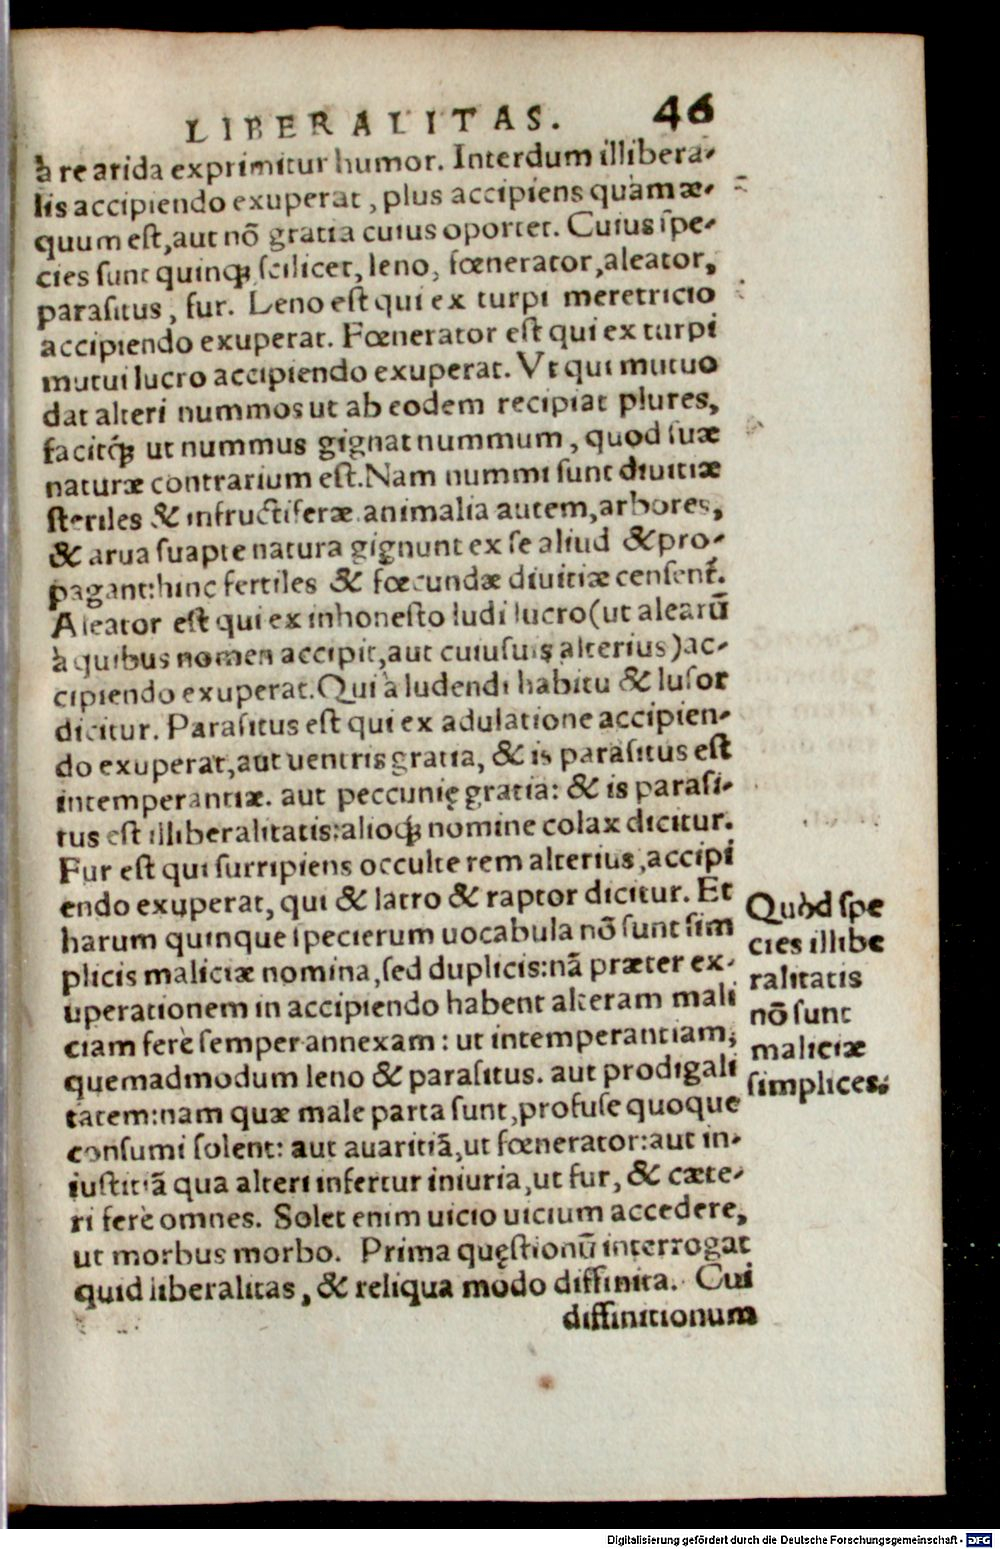 LIBERALITAS. 46
à re arida exprimitur humor. Interdum illibera-
lis accipiendo exuperat, plus accipiens quàm æ-
quum eſt, aut nõ gratia cuius oportet. Cuius ſpe-
cies ſunt quinqꝫ ſcilicet, leno, fœnerator, aleator,
paraſitus, fur. Leno eſt qui ex turpi meretricio
accipiendo exuperat. Fœnerator eſt qui ex turpi
mutui lucro accipiendo exuperat. Vt qui mutuo
dat alteri nummos ut ab eodem recipiat plures,
facitqꝫ ut nummus gignat nummum, quod ſuæ
naturæ contrarium eſt. Nam nummi ſunt diuitiæ
ſteriles & infructiferæ animalia autem, arbores,
& arua ſuapte natura gignunt ex ſe aliud & pro-
pagant: hinc fertiles & fœcundæ diuitiæ cenſent̃.
Aleator eſt qui ex inhoneſto ludi lucro (ut alearũ
à quibus nomen accipit, aut cuiuſuis alterius) ac-
cipiendo exuperat. Qui à ludendi habitu & luſor
dicitur. Paraſitus eſt qui ex adulatione accipien-
do exuperat, aut uentris gratia, & is paraſitus eſt
intemperantiæ. aut peccunię gratia: & is paraſi-
tus eſt illiberalitatis: alioqꝫ nomine colax dicitur.
Fur eſt qui ſurripiens occulte rem alterius, accipi
endo exuperat, qui & latro & raptor dicitur. Et
harum quinque ſpecierum uocabula nõ ſunt ſim
plicis maliciæ nomina, ſed duplicis: nã præter ex-
uperationem in accipiendo habent alteram mali
ciam ferè ſemper annexam: ut intemperantiam,
quemadmodum leno & paraſitus. aut prodigali
tatem: nam quæ male parta ſunt, profuſe quoque
conſumi ſolent: aut auaritiã, ut fœnerator: aut in-
iuſtitiã qua alteri infertur iniuria, ut fur, & cæte-
ri ferè omnes. Solet enim uicio uicium accedere,
ut morbus morbo. Prima quęſtionũ interrogat
quid liberalitas, & reliqua modo diffinita. Cui
diffinitionum
Quòd ſpe
cies illibe
ralitatis
nõ ſunt
maliciæ
ſimplices.
Digitalisierung gefördert durch die Deutsche Forschungsgemeinschaft - DFG